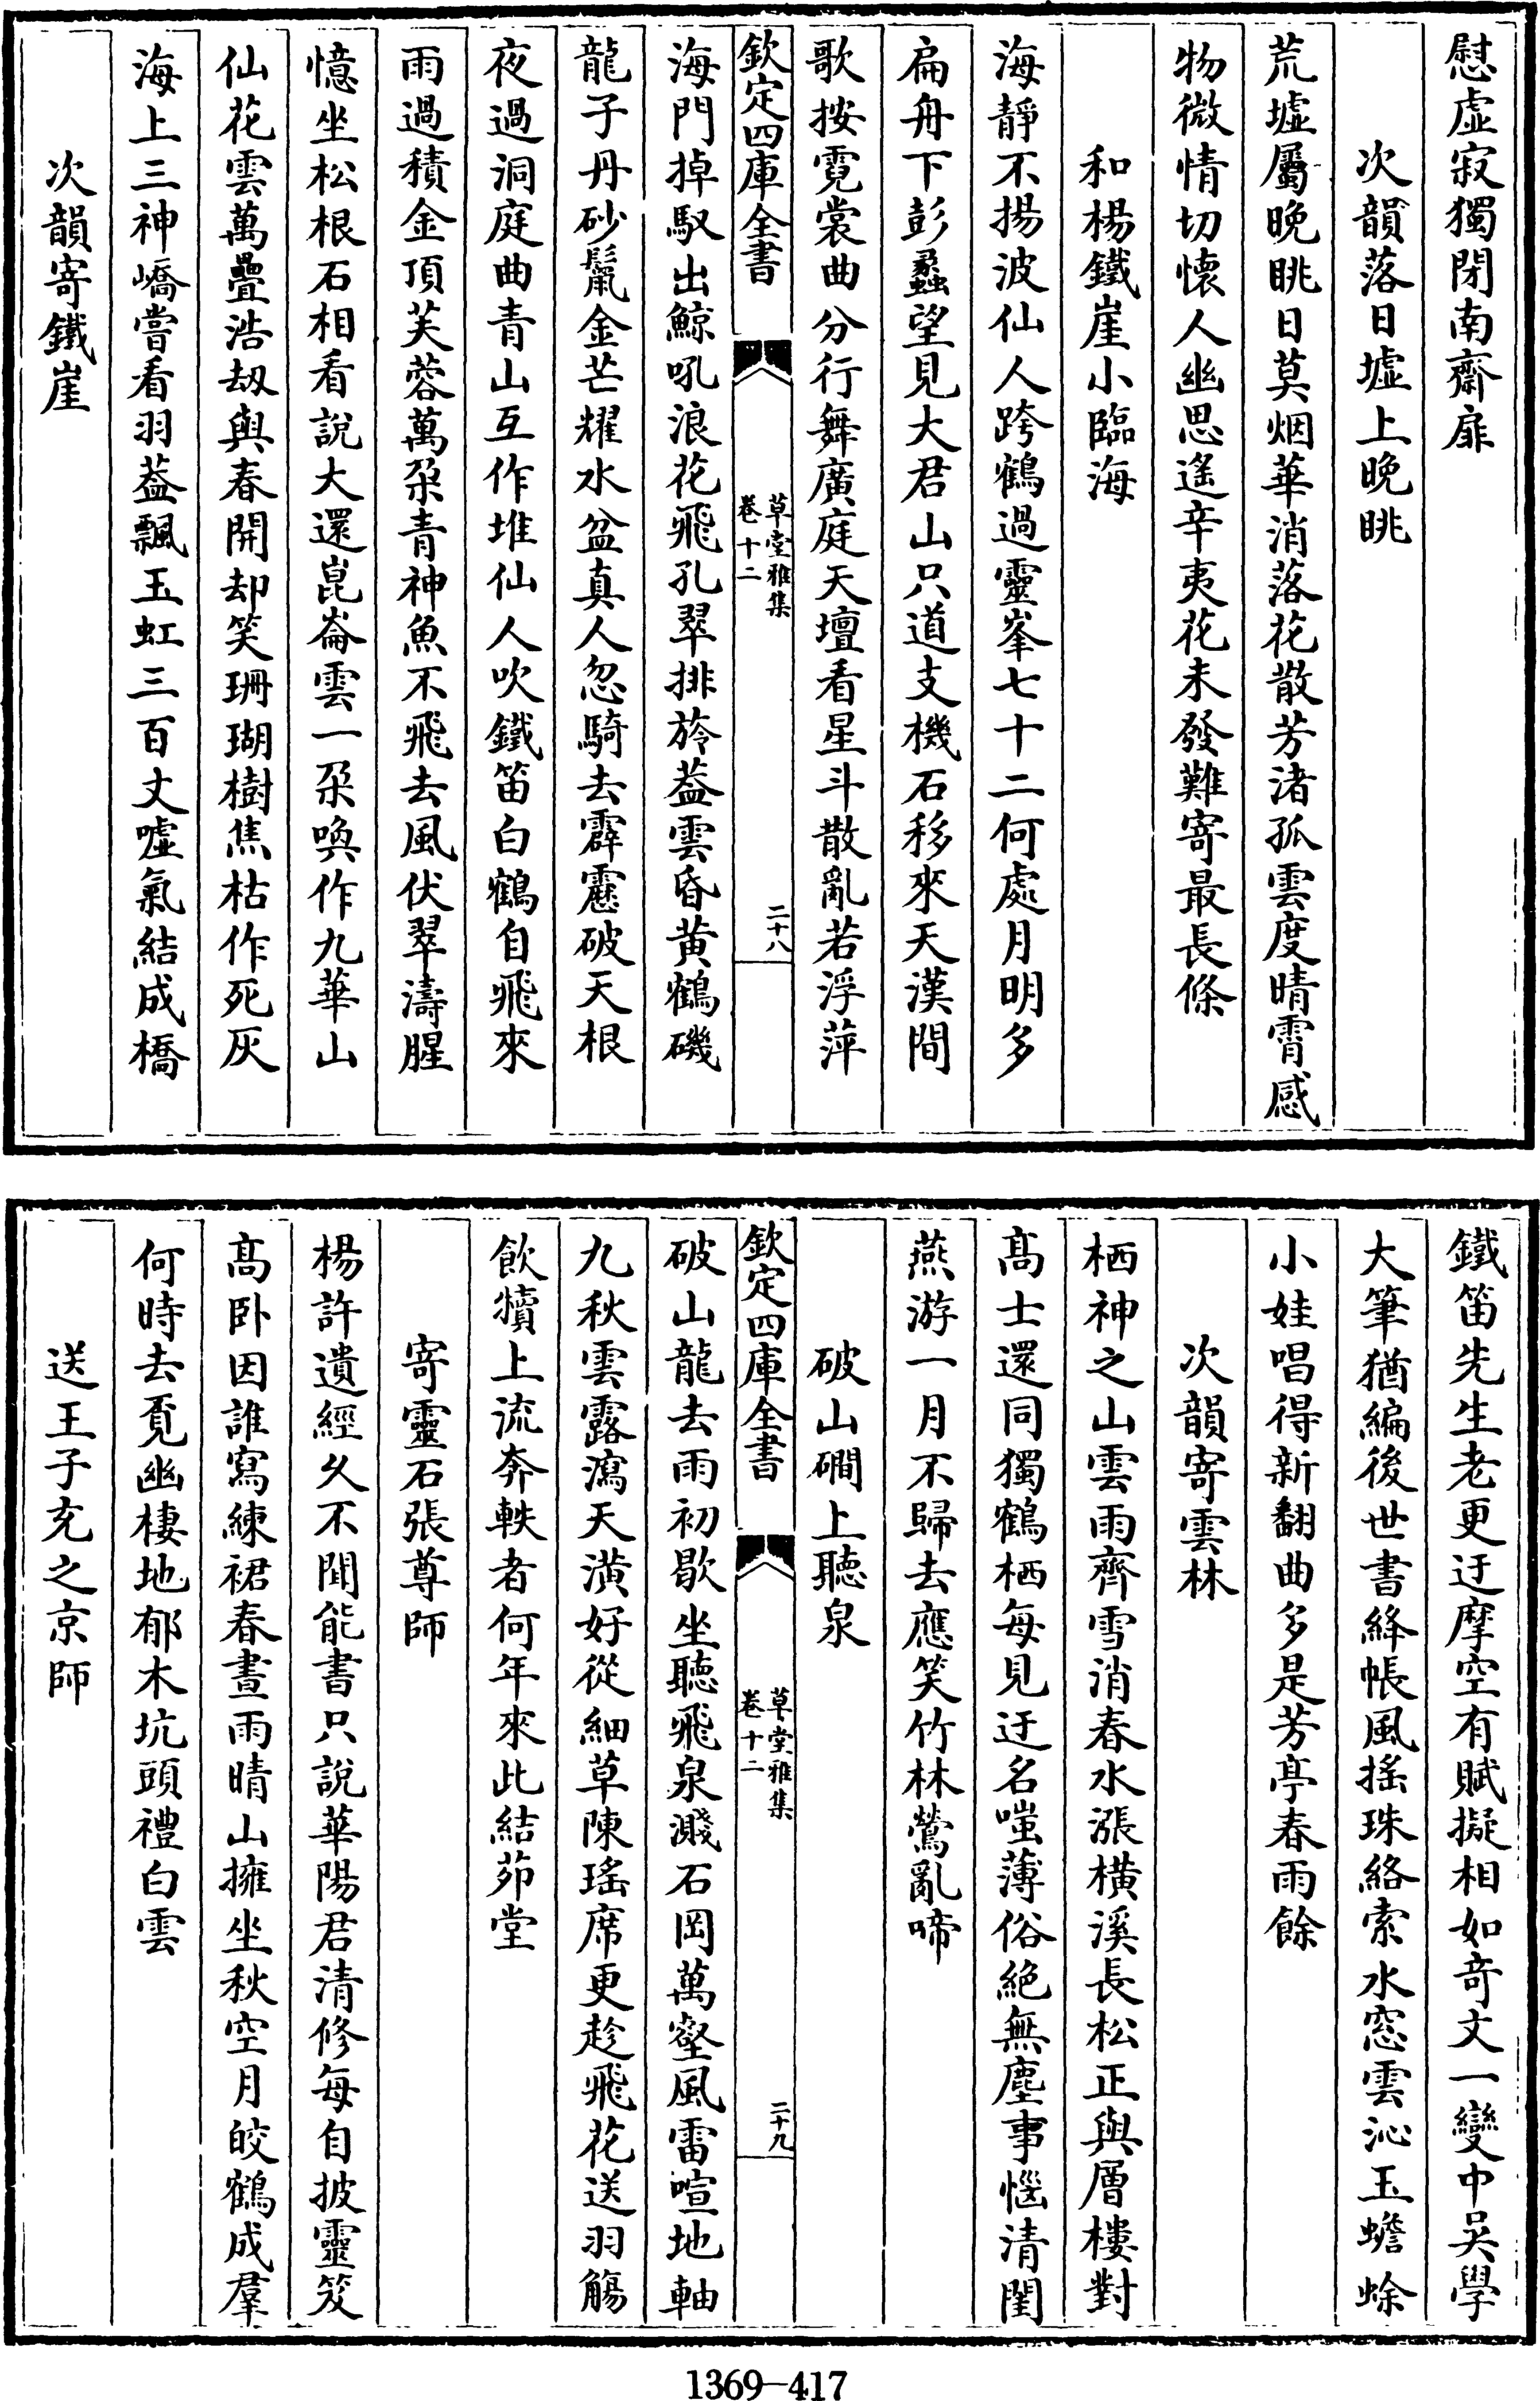 慰虚寂獨閉南齋扉
次韻落日墟上晚眺
荒墟屬晚眺日莫烟華消落花散芳渚孤雲度晴霄感
物微情切懷人幽思遙辛夷花未發難寄最長條
和楊鐵崖小臨海
海靜不揚波仙人跨鶴過靈峯七十二何處月明多
扁舟下彭蠡望見大君山只道支機石移來天漢間
歌按霓裳曲分行舞廣庭天壇看星斗散亂若浮萍
欽定四庫全書
草堂雅集
卷十二
二十八
海門掉馭出鯨吼浪花飛孔翠排旍葢雲昏黄鶴磯
龍子丹砂鬣金芒耀水盆真人忽騎去霹靂破天根
夜過洞庭曲青山互作堆仙人吹鐵笛白鶴自飛來
雨過積金頂芙蓉萬朶青神魚不飛去風伏翠濤腥
憶坐松根石相看說大還崑崙雲一朶喚作九華山
仙花雲萬疊浩刼與春開却笑珊瑚樹焦枯作死灰
海上三神嶠嘗看羽葢飄玉虹三百丈嘘氣結成橋
次韻寄鐵崖
鐵笛先生老更迂摩空有賦擬相如奇文一變中吴學
大筆猶編後世書絳帳風揺珠絡索水窓雲沁玉蟾蜍
小娃唱得新翻曲多是芳亭春雨餘
次韻寄雲林
栖神之山雲雨齊雪消春水漲橫溪長松正與層樓對
髙士還同獨鶴栖每見迂名嗤薄俗絶無塵事惱清閨
燕游一月不歸去應笑竹林鶯亂啼
破山磵上聽泉
欽定四庫全書
草堂雅集
卷十二
二十九
破山龍去雨初歇坐聽飛泉濺石岡萬壑風雷喧地軸
九秋雲露瀉天潢好從細草陳瑤席更趁飛花送羽觴
飲犢上流奔軼者何年來此結茆堂
寄靈石張尊師
楊許遺經久不聞能書只說華陽君清修每自披靈笈
髙卧因誰寫練裙春晝雨晴山擁坐秋空月皎鶴成羣
何時去覓幽棲地郁木坑頭禮白雲
送王子充之京師
1369-417